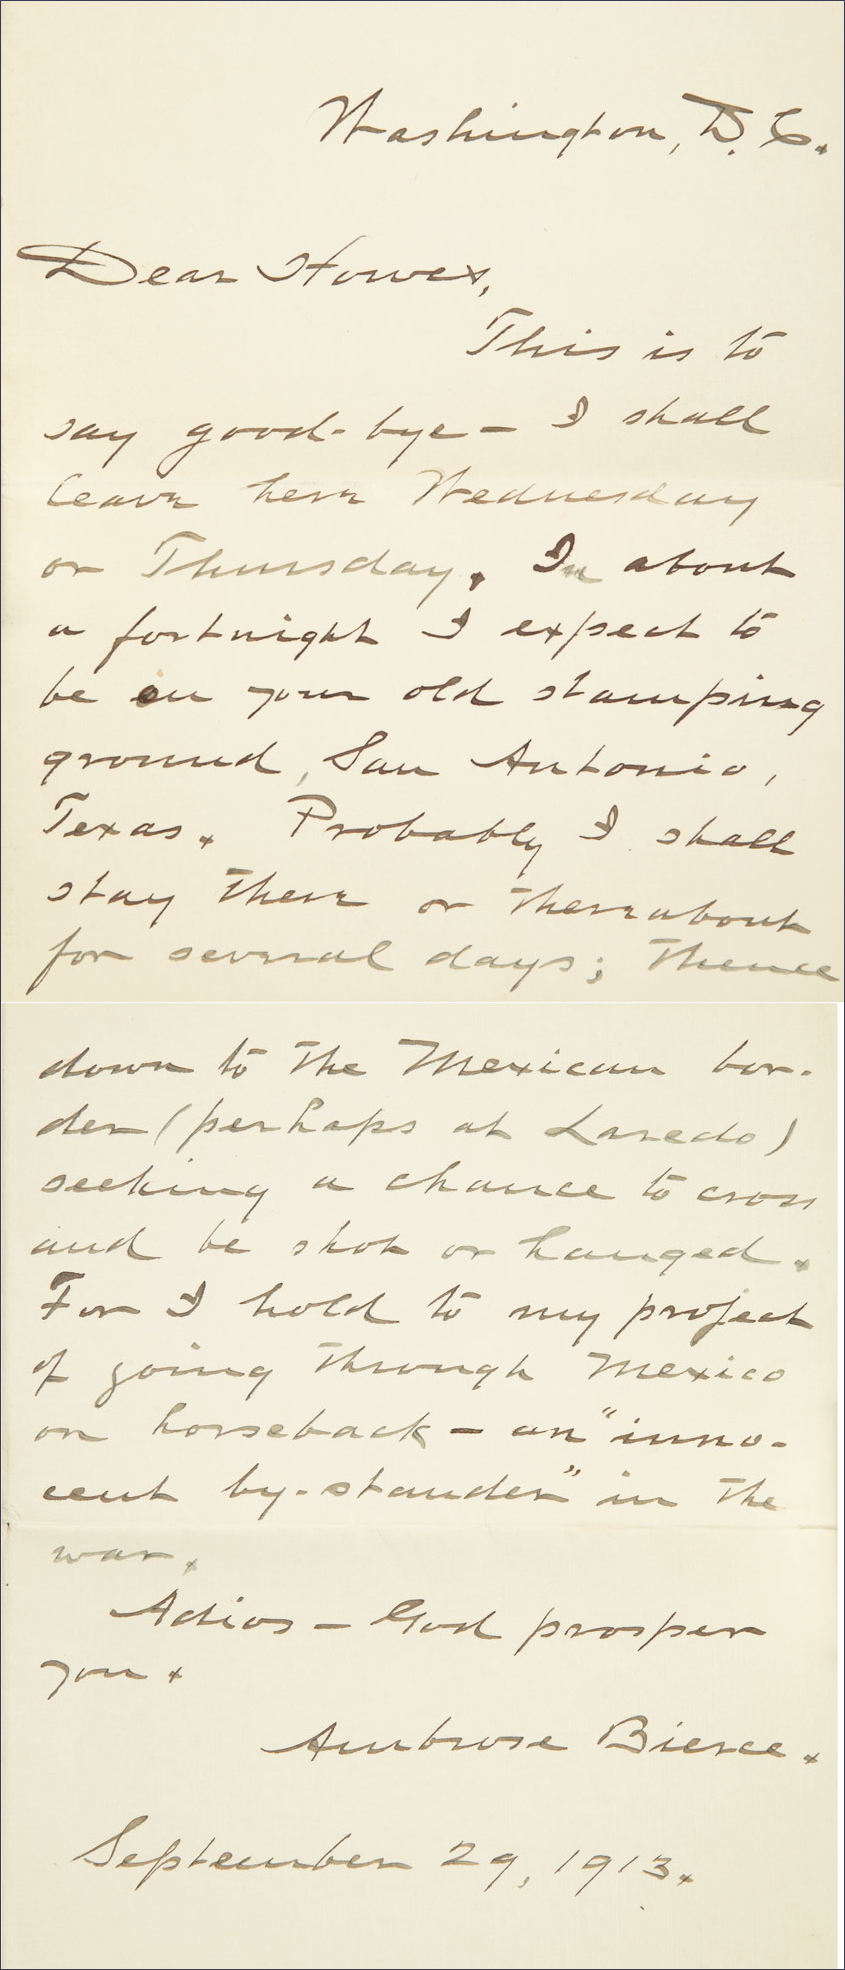 Washington, D.C.
Dear Howes,
This is to
say good-bye – I shall
leave here Wednesday
or Thursday. In about
a fortnight I expect to
be on your old stamping
ground, San Antonio,
Texas. Probably I shall
stay there or thereabout
for several days; thence
down to the Mexican bor-
der (perhaps at Laredo)
seeking a chance to cross
and be shot or hanged.
For I hold to my project
of going through Mexico
on horseback – an "inno-
cent by-stander" in the
war.
Adios – God prosper
you.
Ambrose Bierce.
September 29, 1913.